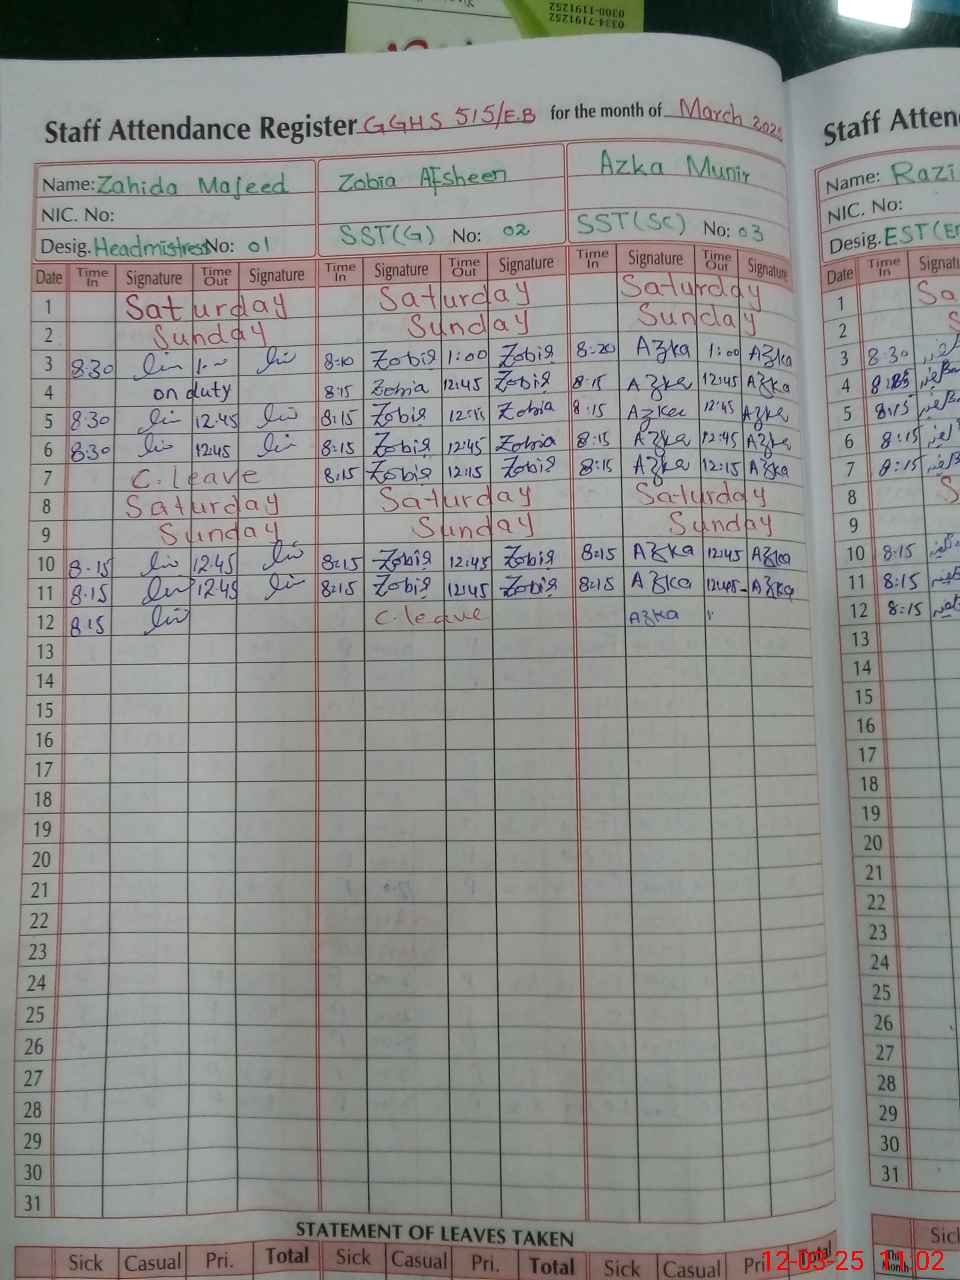 0300-1191252
0334-7191252
Staff Attendance Register GGHS 515/E.B for the month of March 2025
Name: Zahida Majeed Zobia Afsheen Azka Munir
NIC. No:
Desig. Headmistress No: 01 SST(G) No: 02 SST(SC) No: 03
Date Time In Signature Time Out Signature Time In Signature Time Out Signature Time In Signature Time Out Signature
1 Saturday Saturday Saturday
2 Sunday Sunday Sunday
3 8:30 1:-- 8:10 Zobia 1:00 Zobia 8:20 Azka 1:00 Azka
4 on duty 8:15 Zobia 12:45 Zobia 8:15 Azka 12:45 Azka
5 8:30 12.45 8:15 Zobia Zobia 8:15 Azka 12:45 Azka
6 8:30 12:45 8:15 Zobia 12:45 Zobia 8:15 Azka 12:45 Azka
7 C.leave 8:15 Zobia 12:15 Zobia 8:15 Azka 12:15 Azka
8 Saturday Saturday Saturday
9 Sunday Sunday Sunday
10 8.15 12.45 8:15 Zobia 12:45 Zobia 8:15 Azka 12:45 Azka
11 8:15 12.45 8:15 Zobia 12:45 Zobia 8:15 Azka 12:45 Azka
12 8:15 C.leave Azka
13
14
15
16
17
18
19
20
21
22
23
24
25
26
27
28
29
30
31
STATEMENT OF LEAVES TAKEN
Sick Casual Pri. Total Sick Casual Pri. Total Sick Casual Pri. Total
Staff Atten
Name: Razi
NIC. No:
Desig. EST(E
Date Time In Signatu
1 Sa
2 S
3 8:30
4 8:15
5 8:15
6 8:15
7 8:15
8 S
9
10 8:15
11 8:15
12 8:15
13
14
15
16
17
18
19
20
21
22
23
24
25
26
27
28
29
30
31
Sick
This Month
12-03-25 11:02